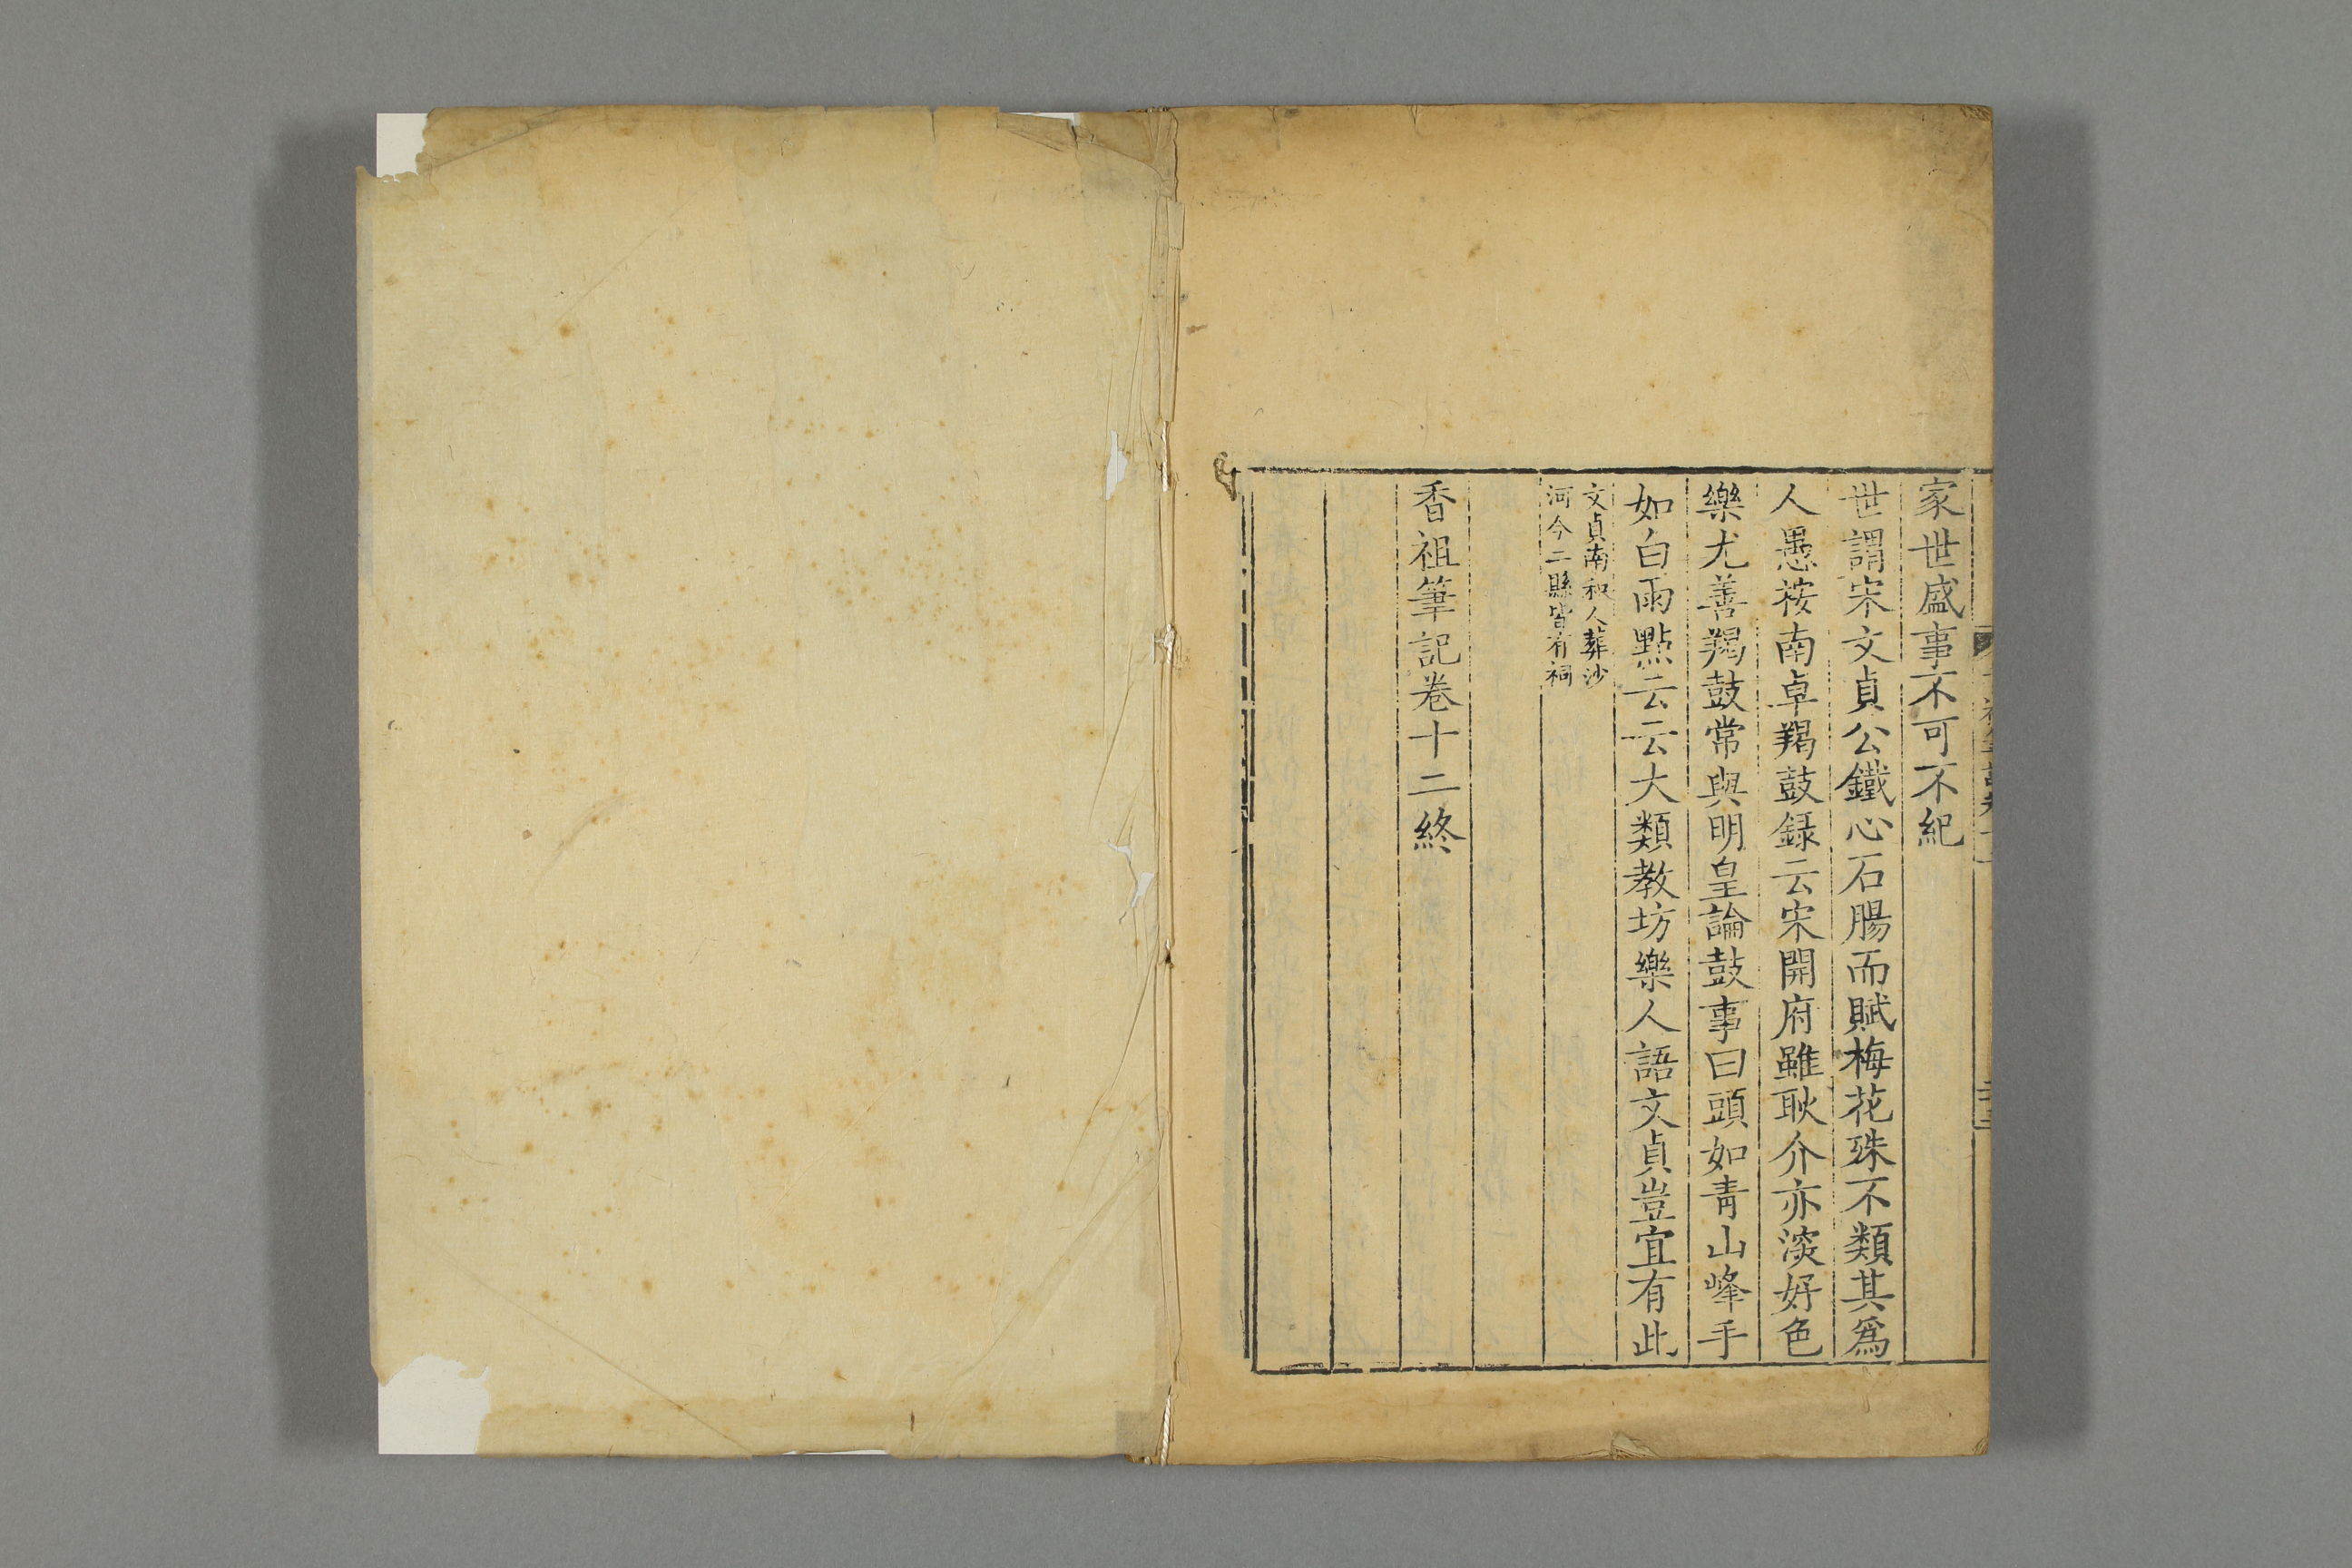 家世盛事不可不紀
世謂宋文貞公鐵心石腸而賦梅花殊不類其爲
人愚桉南卓羯鼓録云宋開府雖耿介亦淡好色
樂尤善羯鼓常與明皇論鼓事曰頭如青山峰手
如白雨點云云大類教坊樂人語文貞豈宜有此
文貞南和人葬沙
河今二縣皆有祠
香祖筆記卷十二終